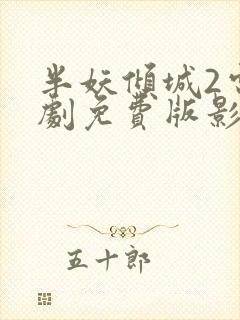 半妖傾城2
劇免費版影
五十郎